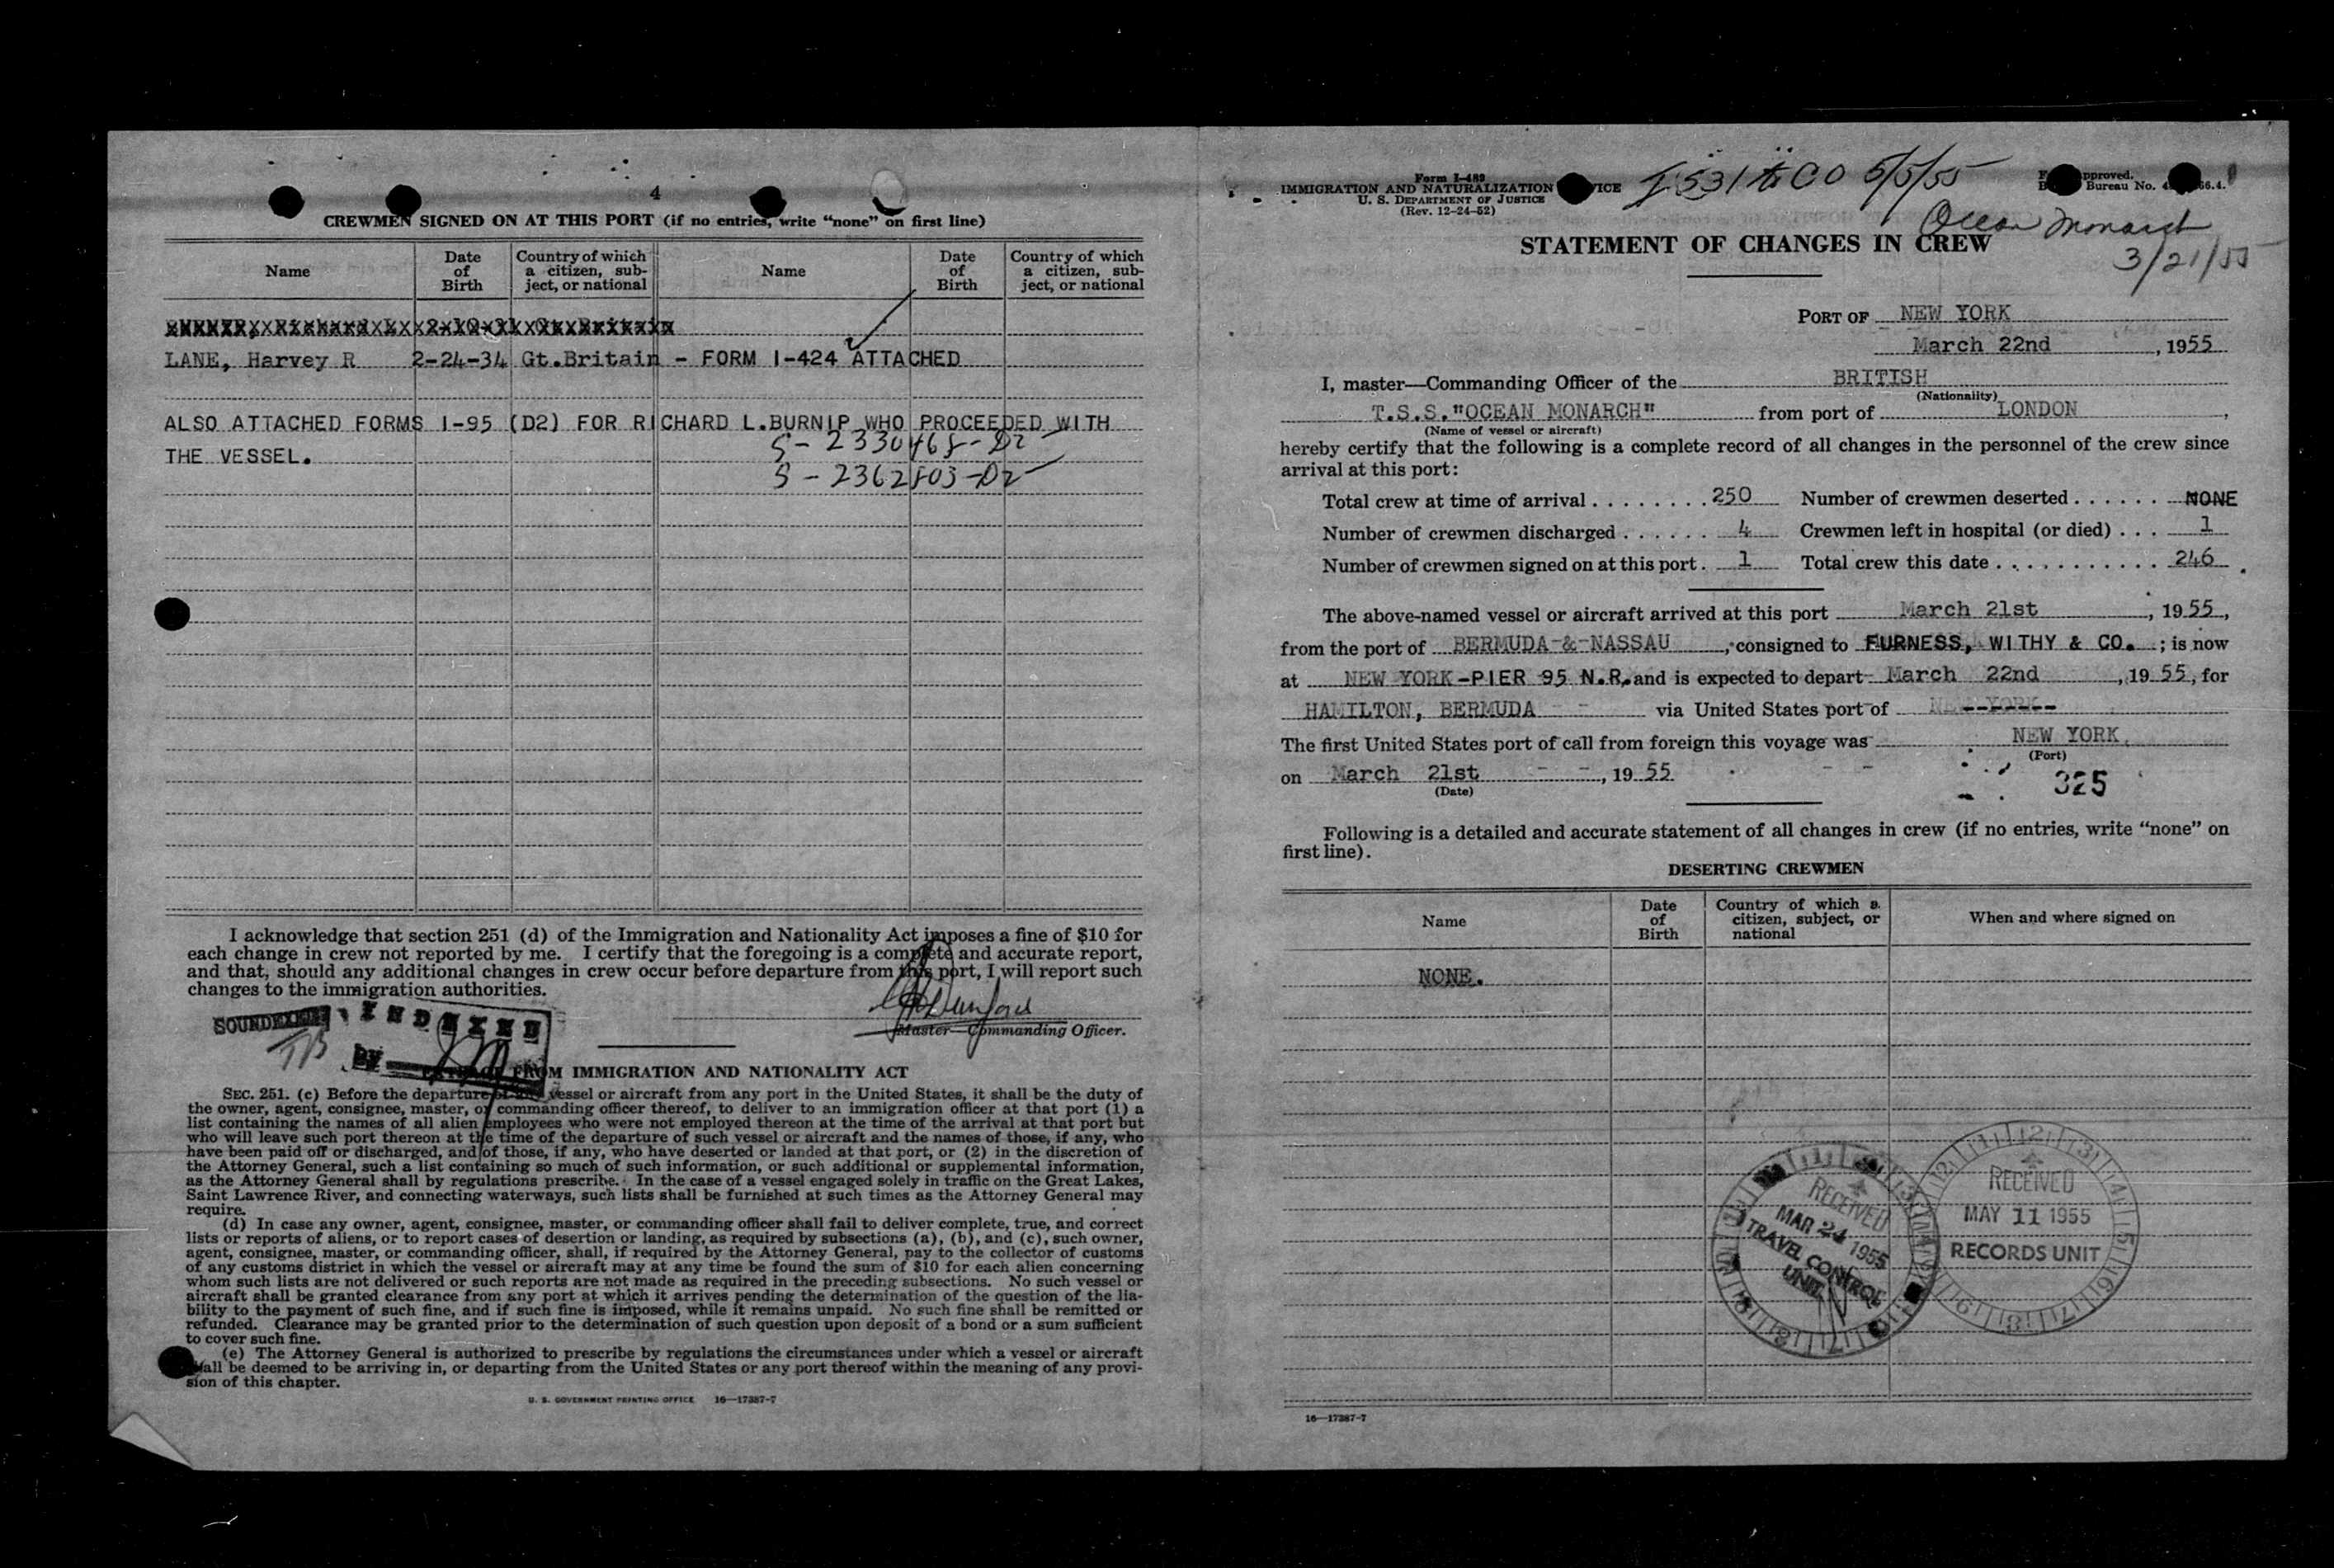 4
CREWMEN SIGNED ON AT THIS PORT (if no entries, write "none" on first line)
Name
Date of Birth
Country of which a citizen, subject, or national
Name
Date of Birth
Country of which a citizen, subject, or national
LANE, Harvey R 2-24-34 Gt.Britain - FORM I-424 ATTACHED
ALSO ATTACHED FORMS I-95 (D2) FOR RICHARD L.BURNIP WHO PROCEEDED WITH
THE VESSEL.
I acknowledge that section 251 (d) of the Immigration and Nationality Act imposes a fine of $10 for
each change in crew not reported by me. I certify that the foregoing is a complete and accurate report,
and that, should any additional changes in crew occur before departure from this port, I will report such
changes to the immigration authorities.
SOUNDEXED
INDEXED
by
Master—Commanding Officer.
EXTRACT FROM IMMIGRATION AND NATIONALITY ACT
SEC. 251. (c) Before the departure of any vessel or aircraft from any port in the United States, it shall be the duty of
the owner, agent, consignee, master, or commanding officer thereof, to deliver to an immigration officer at that port (1) a
list containing the names of all alien employees who were not employed thereon at the time of the arrival at that port but
who will leave such port thereon at the time of the departure of such vessel or aircraft and the names of those, if any, who
have been paid off or discharged, and of those, if any, who have deserted or landed at that port, or (2) in the discretion of
the Attorney General, such a list containing so much of such information, or such additional or supplemental information,
as the Attorney General shall by regulations prescribe. In the case of a vessel engaged solely in traffic on the Great Lakes,
Saint Lawrence River, and connecting waterways, such lists shall be furnished at such times as the Attorney General may
require.
(d) In case any owner, agent, consignee, master, or commanding officer shall fail to deliver complete, true, and correct
lists or reports of aliens, or to report cases of desertion or landing, as required by subsections (a), (b), and (c), such owner,
agent, consignee, master, or commanding officer, shall, if required by the Attorney General, pay to the collector of customs
of any customs district in which the vessel or aircraft may at any time be found the sum of $10 for each alien concerning
whom such lists are not delivered or such reports are not made as required in the preceding subsections. No such vessel or
aircraft shall be granted clearance from any port at which it arrives pending the determination of the question of the lia-
bility to the payment of such fine, and if such fine is imposed, while it remains unpaid. No such fine shall be remitted or
refunded. Clearance may be granted prior to the determination of such question upon deposit of a bond or a sum sufficient
to cover such fine.
(e) The Attorney General is authorized to prescribe by regulations the circumstances under which a vessel or aircraft
shall be deemed to be arriving in, or departing from the United States or any port thereof within the meaning of any provi-
sion of this chapter.
U. S. GOVERNMENT PRINTING OFFICE 16—17387-7
Form I-489
IMMIGRATION AND NATURALIZATION SERVICE
U. S. DEPARTMENT OF JUSTICE
(Rev. 12-24-52)
5/5/55
approved.
Bureau No.
Ocean Monarch
3/21/55
STATEMENT OF CHANGES IN CREW
PORT OF NEW YORK
March 22nd, 1955
I, master—Commanding Officer of the BRITISH
(Nationality)
T.S.S."OCEAN MONARCH" from port of LONDON,
(Name of vessel or aircraft)
hereby certify that the following is a complete record of all changes in the personnel of the crew since
arrival at this port:
Total crew at time of arrival . . . . . . . . 250 Number of crewmen deserted . . . . . . NONE
Number of crewmen discharged . . . . . . 4 Crewmen left in hospital (or died) . . . 1
Number of crewmen signed on at this port . 1 Total crew this date . . . . . . . . . . . 246
The above-named vessel or aircraft arrived at this port March 21st, 1955,
from the port of BERMUDA & NASSAU, consigned to FURNESS, WITHY & CO. ; is now
at NEW YORK-PIER 95 N.R. and is expected to depart March 22nd, 1955, for
HAMILTON, BERMUDA via United States port of ------
The first United States port of call from foreign this voyage was NEW YORK
(Port)
on March 21st, 1955
(Date)
325
Following is a detailed and accurate statement of all changes in crew (if no entries, write "none" on
first line).
DESERTING CREWMEN
Name
Date of Birth
Country of which a citizen, subject, or national
When and where signed on
NONE.
RECEIVED
MAR 24 1955
TRAVEL CONTROL
UNIT
RECEIVED
MAY 11 1955
RECORDS UNIT
16—17387-7